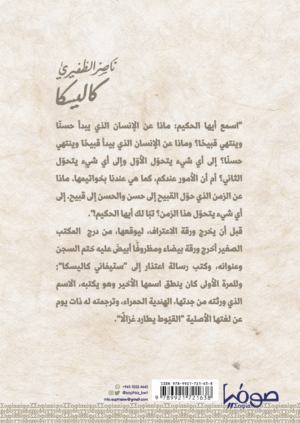 ناصر الظفيري
كاليسكا
"اسمع أيها الحكيم: ماذا عن الإنسان الذي يبدأ حسنًا
وينتهي قبيحًا؟ وماذا عن الإنسان الذي يبدأ قبيحًا وينتهي
حسنًا؟ إلى أي شيء يتحول الأول وإلى أي شيء يتحول
الثاني؟ أم أن الأمور عندكم، كما هي عندنا بخواتيمها. ماذا
عن الزمن الذي حوّل القبيح إلى حسن والحسن إلى قبيح، إلى
أي شيء يتحول هذا الزمن؟ تبًا لك أيها الحكيم!".
قبل أن يخرج ورقة الاعتراف، ليوقعها، من درج المكتب
الصغير أخرج ورقة بيضاء ومظروفًا أبيض عليه ختم السجن
وعنوانه، وكتب رسالة اعتذار إلى "ستيفاني كاليسكا"؛
وللمرة الأولى كان ينطق اسمها الأخير وهو يكتبه، الاسم
الذي ورثته من جدتها، الهندية الحمراء، وترجمته له ذات يوم
عن لغتها الأصلية "القيّوط يطارد غزالًا".
ISBN 978-9921-721-63-8
9 789921 721638
+965 5522 4645
@sophia_kwt
info.sophiakw@gmail.com
صوفيا